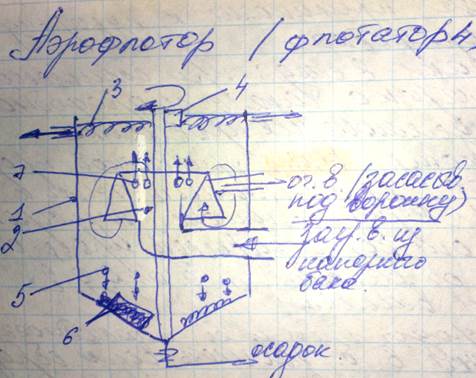 Аэрофлотор / флотатор
3
4
7
1
2
5
6
ог. в. (засасов.
под воронку)
загр. в. из
напорного
бака
осадок